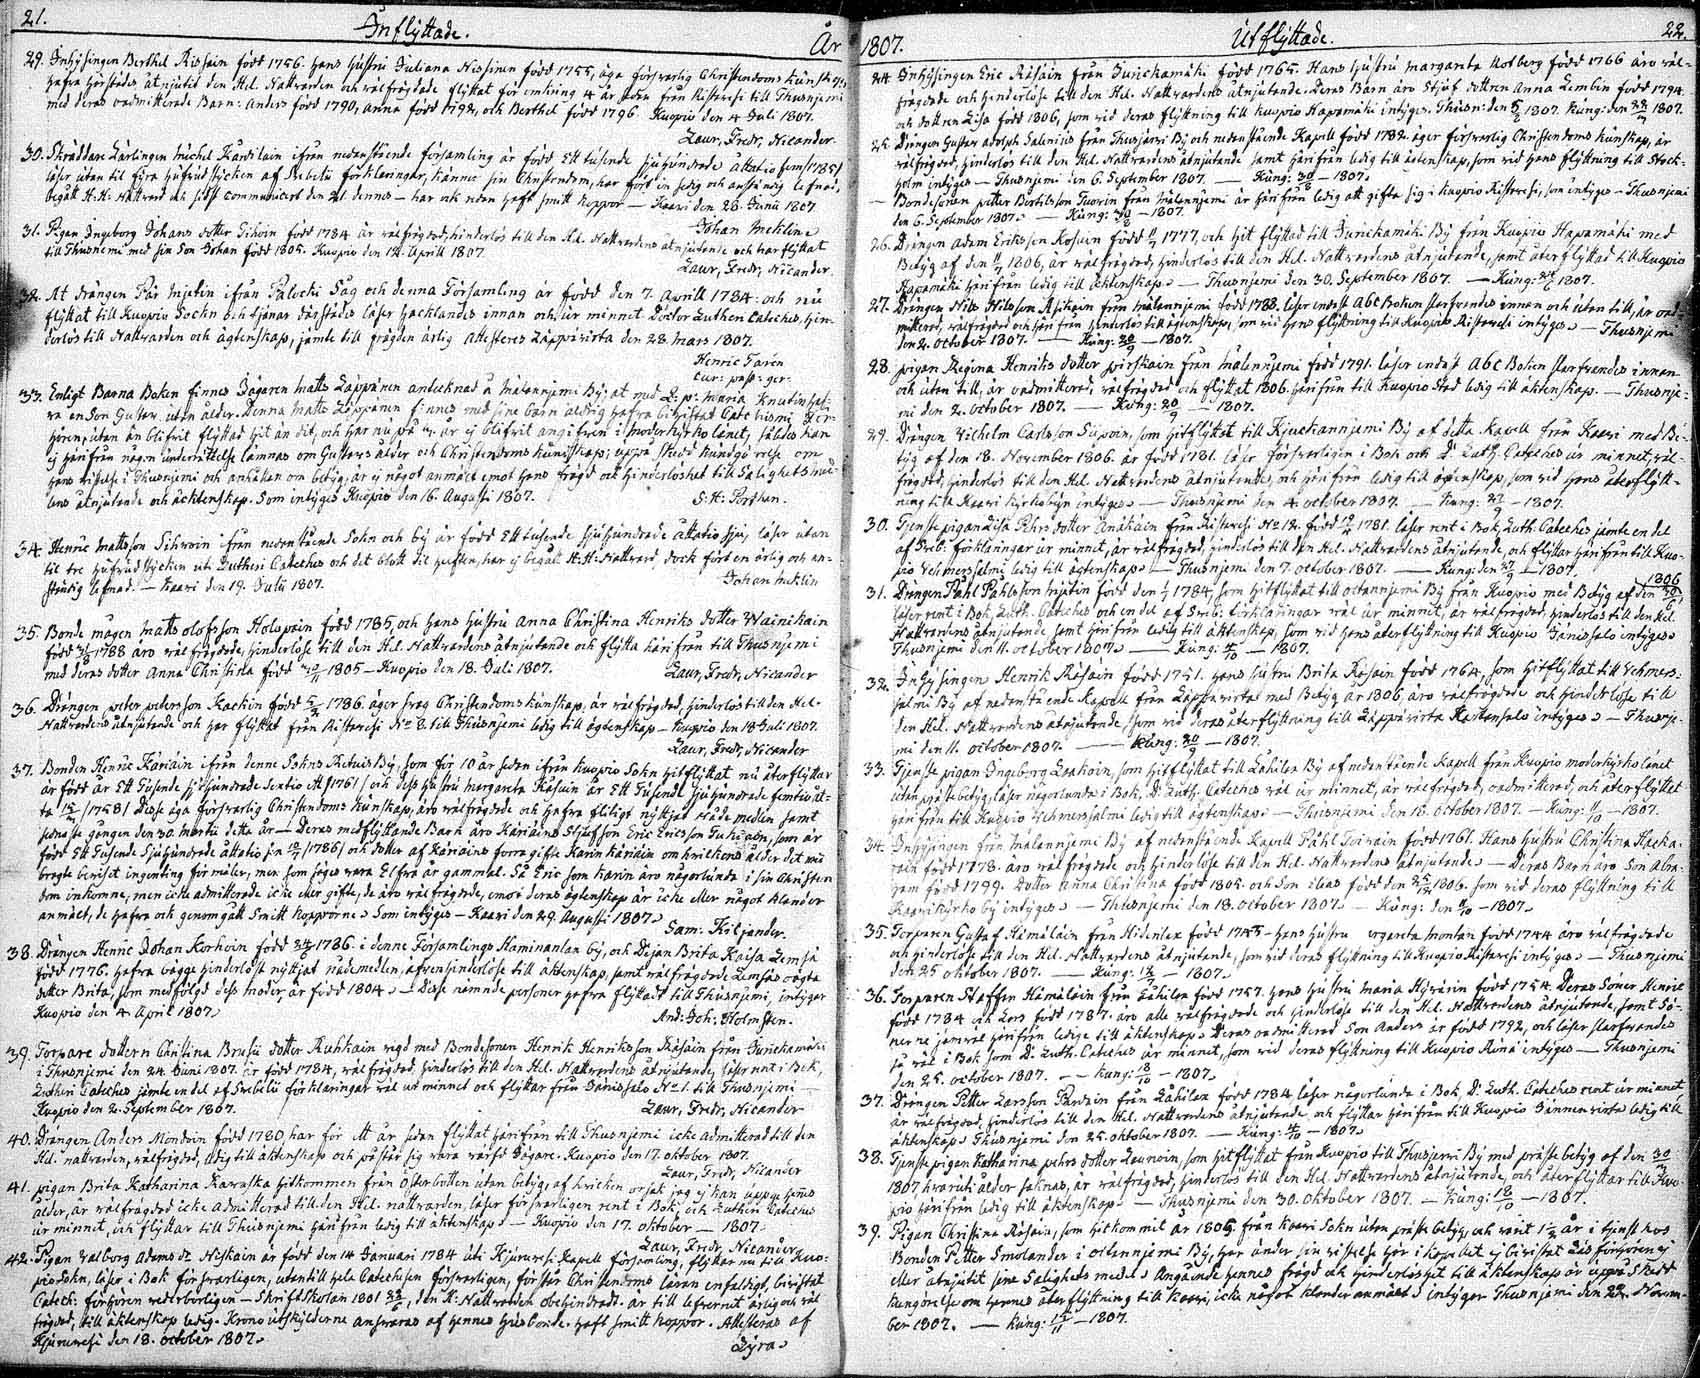 21. Inflyttade. År
29. Inhysingen Berthel Rissain född 1756. hans hustru Juliana Nissinen född 1755, äga försvarlig Christendoms kunskap,
hafva härstädes åtnjutit den Hel. Nattvarden och välfrägdade flyttat för omkring 4 år sedan från Ristavesi till Thusnjemi
med deras oadmitterade Barn: Anders född 1790, Anna född 1792, och Berthel född 1796 Kuopio den 4 Juli 1807.
Laur. Fredr. Nicander
30. Skräddare Lärlingen Michel Kardilain ifrån nedanstående församling är född Ett tusende sjuhundrade åttatio fem /:1785:/
läser utan til fyra hufvudstycken af Svebelii förklaringar, känner sin Christendom, har fört en sedig och anständig lefnad,
begått H: H: Nattvard och sidst communicert den 21 dennes – har ock uden haft smitt koppor – Kaavi den 28 Junii 1807
Johan Meklin
31. Pigan Ingeborg Johans dotter Sihvoin född 1784 är välfrägdad, hinderlös till den Hel. Nattvardens åtnjutande och har flyttat
till Thusnjemi med sin Son Johan född 1805. Kuopio den 12. Aprill 1807
Laur, Fredr, Nicander.
32. At drängen Pår Mjetin ifrån Palocki Såg och denna Församling är född den 7. Aprill 1784. och nu
flyttat till Kuopio Sockn och tjänar därstädes läser hacklandes innan och ur minnet Doctor Luthers Cateches, hin-
derlös till Nattvarden och ägtenskap, jämte till frägden ärlig attesteres Läppävirta den 28. Mars 1807.
Henric Tavén
Cur: past: ger:
33. Enligt Barna Boken finnes Jägaren Matts Läppänen antecknad å Målannjemi By; at med L: p: Maria Knutin haf-
va en Son Gustav utan ålder. Denna Matts Läppänen finnes med sine barn aldrig hafva bivistat Catechismi För-
hören, utan än blifvit flyttad hit än dit, och har nu på är ej blifvit angifven i moderkyrkolänet, således kan
ej härifrån någon underrättelse lämnas om Gustavs ålder och Christendoms kunskap; uppå skedd kundgörelse om
hans vistelse i Thusnjemi och anhållan om betyg, är ej något anmält emot hans frägd och hinderlöshet till Salighets med-
lens åtnjutande och äcktenskap. Som intygas Kuopio den 16. Augusti 1807.
S. H: Porthan.
34. Henric Mattsson Sihvoin ifrån nedanstående Sokn och by är född Ett tusende sjuhundrade åttatio sju, läser utan
til tre hufvudstycken utu Lutheri Cateches och det blott til hälften, har ej begått H: H: Nattvard, dock fört en ärlig och an-
ständig lefnad. – Kaavi den 19. Julii 1807.
Johan Meklin
35. Bonde mågen Matts Olofsson Holopain född 1785, och hans hustru Anna Christina Henriks dotter Wainikain
född 1788 äro välfrägdade, hinderlöse till den Hel. Nattvardens åtnjutande och flytta härifrån till Thusnjemi
med deras dotter Anna Christina född 1805 – Kuopio den 18. Juli 1807.
Laur, Fredr, Nicander
36. Drängen Peter Petersson Kackin född 1786. äger svag Christendoms kunskap, är välfrägdad, hinderlös till den Hel.
Nattvardens åtnjutande och har flyttat från Ristavesi No 8. till Thusnjemi ledig till ägtenskap – Kuopio den 18 Juli 1807.
Laur, Fredr, Nicander
37. Bonden Henric Käriäin ifrån denne Sokns By, som för 10 år sedan ifrån Kuopio Sokn hitflyttat nu återflyttar
är född år Ett Tusende sjuhundrade Sextio ett /1761/ och dess hustru Margareta Räsäin är Ett Tusende sjuhundrade femtio åt-
ta /1758/ Desse äga försvarlig Christendoms kunskap, äro välfrägdade och hafva flitigt nyttjat nåde medlen samt
sednaste gången den 30. martii detta år – Deras medflyttande Barn äro Käriäins Styfson Eric Ericson Tukiain, som är
född Ett tusende Sjuhundrade åttatio sex /1786/ och dotter af Käriäins förra gifte Karin Käriäin om hvilkens ålder det mid
bragte beviset ingenting förmäler, men som säges vara Elfva år gammal. Så Eric som Karin äro någorlunda i sin Christen
dom inkomne, men icke admitterade icke eller gifte, de äro välfrägdade, emot deras ägtenskap är icke eller något klander
anmält, de hafva och genomgått Smitt kopporne. Som intygas – Kaavi den 29. Augusti 1807.
Sam. Kiljander.
38. Drängen Henric Johan Korhoin född 1786. i denne Församlings Kaminanlan by, och Dejan Brita Kaisa Lemsä
född 1776. hafva bägge hinderlöst nyttjat nådemedlen, äfven hinderlöse till äktenskap, samt välfrägdade Lemsäs oägta
dotter Brita, som medföljd dess moder är född 1804. – Desse nämnde personer hafva flyttadt till Thusnjemi, intygar
Kuopio den 4 April 1807.
And: Joh: Holmsten.
39. Torpare dottern Christina Brusii dotter Ruhkain vigd med Bondesonen Henrik Henriksson Räsäin från Jurickamäki
i Thusnjemi den 24. Juni 1807. är född 1784, välfrägdad, hinderlös till den Hel. Nattvardens åtnjutande, läser rent i Bok,
Lutheri Cateches jämte en del af Svebelii förklaringar väl ur minnet och flyttar från Jänissalo No 1. till Thusnjemi –
Kuopio den 2. September 1807.
Laur, Fredr, Nicander
40. Drängen Anders Mondoin född 1780, har för ett år sedan flyttat härifrån till Thusnjemi icke admitterad till den
Hel. nattvarden, välfrägdad, ledig till äktenskap och påstår sig vara värfd Jägare. Kuopio den 17. oktober 1807.
Laur, Fredr, Nicander
41. pigan Brita Katharina Kavaska hitkommen från Österbotten utan betyg, af hvilken orsak jag ej kan uppge hennes
ålder, är välfrägdad icke admitterad till den Hel. nattvarden, läser försvarligen rent i Bok, och Lutheri Cateches
ur minnet, och flyttar till Thusnjemi härifrån ledig till äktenskap – Kuopio den 17. oktober – 1807.
Laur, Fredr, Nicander
42. Pigan Valborg Adams dr. Niskain är född den 14 Januari 1784 uti Kjuruvesi Kapell församling, flyttar nu till Kuo-
pio Sokn, läser i Bok försvarligen, utan till hela Catechesen försvarligen, förstår Christendoms läran enfaldigt, bivistat
Catech. förhören vederbörligen – Skriftskolan 1801, den H: Nattvarden obehindradt. är till lefvernet ärlig och väl
frägdad, till äktenskap ledig. Krono utskylderne ansvaras af hennes husbonde. haft smitt koppor. Attesteras af
Kjuruvesi den 18. october 1807.
Lyra.
1807. Utflyttade. 22.
24. Inhysingen Eric Räsäin från Jurickamäki född 1765. Hans hustru Margareta Kolberg född 1766 äro väl-
frägdade och hinderlöse till den Hel. Nattvardens åtnjutande. Deras Barn äro Styf dottren Anna Lembin född 1794.
och dottren Lisa född 1806, som vid deras flyttning till Kuopio Hapamäki intygas. Thusn: den 1807. Kung: den 1807.
25. Drängen Gustav Adolph Salenius från Thusjärvi By och nedanstående Kapell född 1782. äger försvarlig Christendoms kunskap, är
välfrägdad, hinderlös till den Hel. Nattvardens åtnjutande samt härifrån ledig till ägtenskap, som vid hans flyttning till Stock-
holm intygas – Thusnjemi den 6. September 1807. – Kung: 30/8 – 1807.
– Bondesonen Petter Bertilsson Tuovin från Målannjemi är härifrån ledig att gifta sig i Kuopio Ristavesi, som intygas – Thusnjemi
den 6. September 1807. – Kung: 30/8 – 1807.
26. Drängen Adam Eriksson Kosuin född 1777, och hit flyttad till Jurickamäki By från Kuopio Hapamäki med
Betyg af den 1806, är välfrägdad, hinderlös till den Hel. Nattvardens åtnjutande, samt återflyttad till Kuopio
Hapamäki härifrån ledig till äktenskap. – Thusnjemi den 30. September 1807. – Kung: 1807.
27. Drängen Nils Nilsson Asikain från Målannjemi född 1788. läser endast Abc Boken slarfvandes innan och utan till, är oad-
mitterad, välfrägdad och härifrån hinderlös till ägtenskap, som vid hans flyttning till Kuopio Ristavesi intygas – Thusnjemi
den 2. October 1807. – Kung: 20/9 – 1807.
28. pigan Regina Henriks dotter Pörskain från Målannjemi född 1791. läser endast Abc Boken slarfvandes innan
och utan till, är oadmitterad, välfrägdad och flyttat 1806. härifrån till Kuopio Stad ledig till äktenskap. – Thusnje-
mi den 2. october 1807. – Kung: 20/9 – 1807.
29. Drängen Vilhelm Carlsson Suvoin, som hitflyttat till Kjuckannjemi By af detta Kapell från Kaavi med Be-
tyg af den 18. November 1806. är född 1781. läser försvarligen i Bok och D. Luth. Cateches ur minnet, väl-
frägdad, hinderlös till den Hel. Nattvardens åtnjutande, och härifrån ledig till ägtenskap, som vid hans återflytt-
ning till Kaavi Kyrkobyn intygas – Thusnjemi den 4. october 1807. – Kung: 27/9 – 1807.
30. Tjenste pigan Lisa Pehrs dotter Anåkäin från Ristavesi No 12. född 1781. läser rent i Bok, Luth. Cateches jämte en del
af Sveb. förklaringar ur minnet, är välfrägdad, hinderlös till den Hel. Nattvardens åtnjutande, och flyttar härifrån till Kuo-
pio Vehmersalmi ledig till ägtenskap. – Thusnjemi den 7. october 1807. – Kung: den 27/9 – 1807.
31. Drängen Pahl Pahlsson Mjetin född den 1784, som hitflyttat till Oltannjemi By från Kuopio med Betyg af den 1806
läser rent i Bok, Luth. Cateches och en del af Sveb: förklaringar väl ur minnet, är välfrägdad, hinderlös till den Hel.
Nattvardens åtnjutande samt härifrån ledig till äktenskap, som vid hans återflyttning till Kuopio Jänissalo intygas
Thusnjemi den 11. october 1807. – Kung: 4/10 – 1807.
32. Inhysingen Henrik Räsäin född 1751. hans hustru Brita Räsäin född 1764, som hitflyttat till Vehmers:
salmi By af nedanstående Kapell från Läppävirta med Betyg år 1806 äro välfrägdade och hinderlöse till
den Hel. Nattvardens åtnjutande, som vid deras återflyttning till Läppävirta intygas – Thusnje-
mi den 11. october 1807. – Kung: 20/9 – 1807.
33. Tjenste pigan Ingeborg Laakoin, som hitflyttat till Lähilax By af nedanstående Kapell från Kuopio moderkyrkolänet
utan präste betyg, läser någorlunda i Bok, D. Luth. Cateches väl ur minnet, är välfrägdad, oadmitterad, och återflyttat
härifrån till Kuopio Vehmersalmi ledig till ägtenskap. – Thusnjemi den 18. October 1807. – Kung: 11/10 – 1807.
34. Inhysingen från Målannjemi By af nedanstående Kapell Påhl Toivain född 1761. Hans hustru Christina Hacka-
rain född 1778. äro välfrägdade och hinderlöse till den Hel. Nattvardens åtnjutande – Deras Barn äro Son Abra-
ham född 1799. Dotter Anna Christina född 1805. och Son Elias född den 1806. som vid deras flyttning till
Kaavi kyrko by intygas – Thusnjemi den 18. october 1807. – Kung: den 11/10 – 1807.
35. Torparen Gustaf Hämäläin från Hidenlax född 1745 – hans hustru Montan född 1744 äro välfrägdade
och hinderlöse till den Hel. Nattvardens åtnjutande, som vid deras flyttning till Kuopio Ristavesi intygas – Thusnjemi
den 25 oktober 1807. – Kung: 18/10 – 1807.
36. Torparen Staffan Hämäläin från Lähilax född 1757. hans hustru Maria Hyvärin född 1754. Deras Söner Henric
född 1784 och Lars född 1787. äro alle välfrägdade och hinderlöse till den Hel. Nattvardens åtnjutande, samt Sö-
nerne jämväl härifrån ledige till äktenskap. Deras oadmitterad Son Anders är född 1792, och läser slarfvandes
så väl i Bok som D. Luth. Cateches ur minnet, som vid deras flyttning till Kuopio Rüna intygas – Thusnjemi
den 25. october 1807. – Kung: 18/10 – 1807.
37. Drängen Petter Larsson Parvain från Lähilax född 1784 läser någorlunda i Bok, D: Luth. Cateches rent ur minnet,
är välfrägdad, hinderlös till den Hel. Nattvardens åtnjutande och flyttar härifrån till Kuopio Jännevirta ledig till
äktenskap. Thusnjemi den 25. oktober 1807. – Kung: 1807.
38. Tjenste pigan Katharina pehrs dotter Launoin, som hitflyttat från Kuopio till Thusjärvi By med präste betyg af den
1807, hvaruti ålder saknas, är välfrägdad, hinderlös till den Hel. Nattvardens åtnjutande, och återflyttar till Kuo-
pio härifrån ledig till äktenskap – Thusnjemi den 30. oktober 1807. – Kung: 18/10 – 1807.
39. Pigan Christina Räsäin, som hitkommit år 1805 från Kaavi Sokn utan präste betyg, och varit 1½ år i tjenst hos
Bonden Petter Smolander i Oltannjemi By, har under sin vistelse här i Kapellet ej bivistat Läsförhören ej
eller åtnjutit sine Salighets medel. Angående hennes frägd och hinderlöshet till äktenskap är uppå Skedd
kungörelse om hennes återflyttning till Kaavi, icke något klander anmält. intygar Thusnjemi den 22. Novem-
ber 1807. – Kung: 15/11 – 1807.